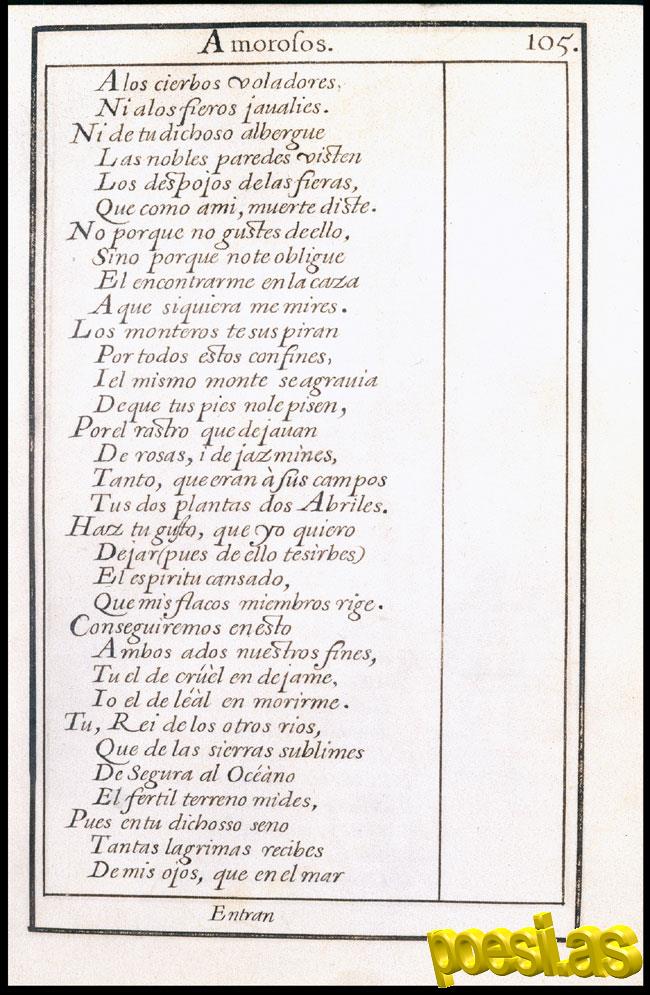 Amorosos. 105.
Alos cierbos voladores,
Ni alos fieros jaualies.
Ni de tu dichoso albergue
Las nobles paredes visten
Los despojos delas fieras,
Que como ami, muerte diste.
No porque no gustes deello,
Sino porque note obligue
El encontrarme enla caza
A que siquiera me mires.
Los monteros te suspiran
Por todos estos confines,
I el mismo monte se agrauia
De que tus pies nole pisen,
Por el rastro que dejauan
De rosas, i de jazmìnes,
Tanto, que eran à sus campos
Tus dos plantas dos Abriles.
Haz tu gusto, que yo quiero
Dejar (pues de ello te sirbes)
El espiritu cansado,
Que mis flacos miembros rige.
Conseguiremos en esto
Ambos ados nuestros fines,
Tu el de crüel en dejame,
Io el de léàl en morirme.
Tu, Rei de los otros rios,
Que de las sierras sublimes
De Segura al Océàno
El fertil terreno mides,
Pues en tu dichosso seno
Tantas lagrimas recibes
De mis ojos, que en el mar
Entran
poesi.as